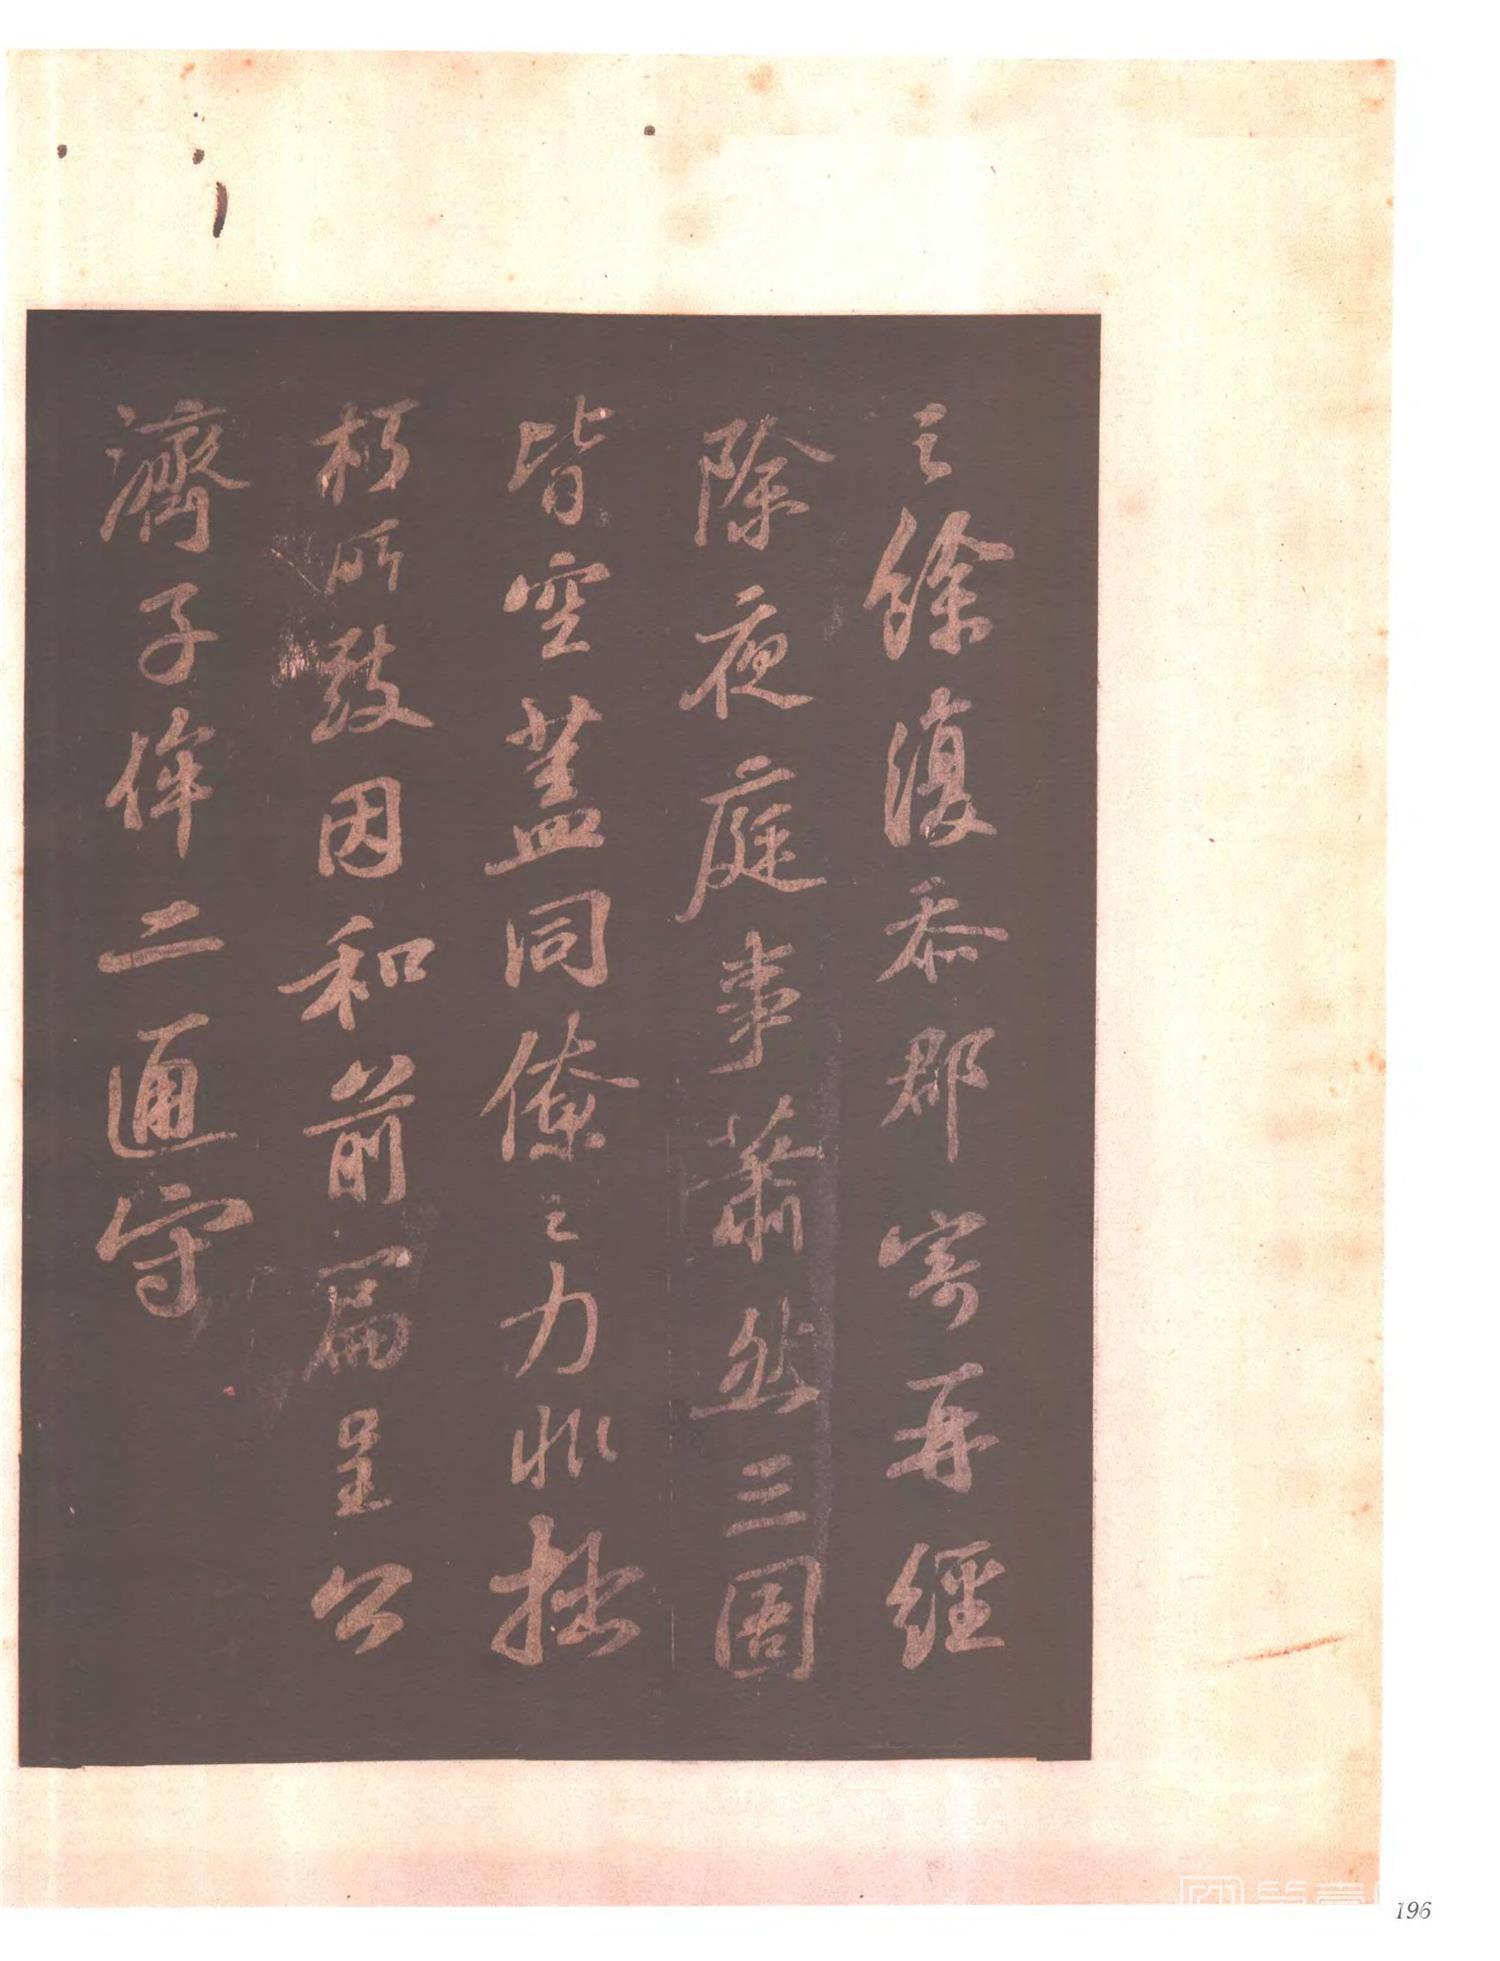 之餘復忝郡寄再經
除夜庭事蕭然三圄
皆空蓋同僚之力非拙
朽所致因和前篇呈公
濟子侔二通守
196